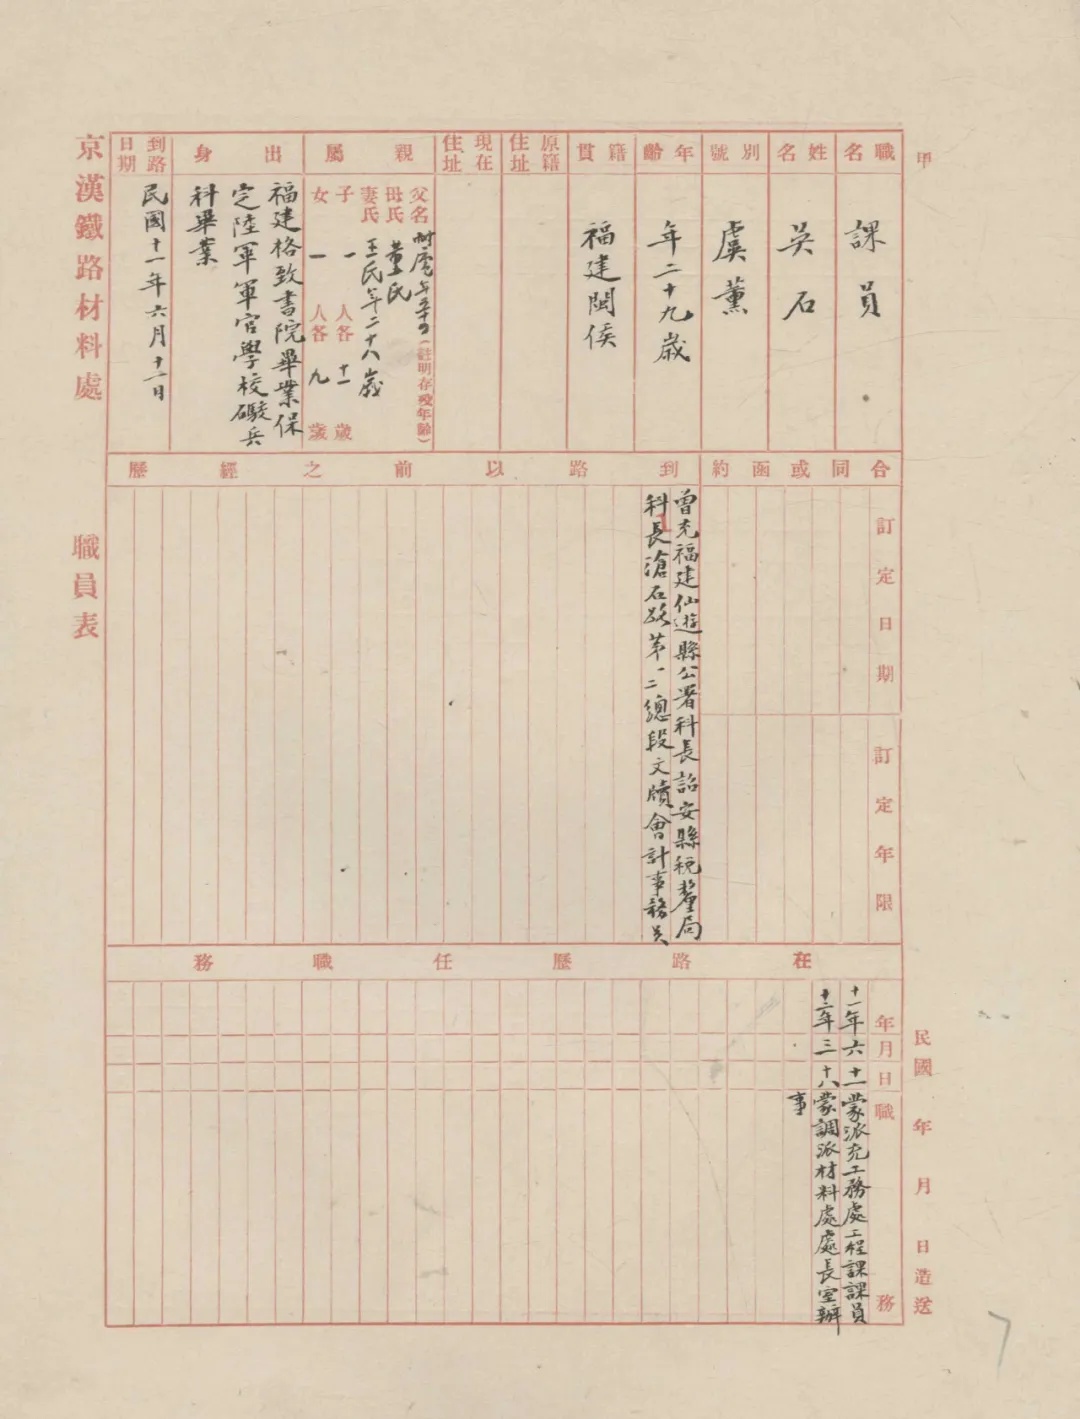 甲
職名
課員
姓名
吳石
別號
虞薰
年齡
年二十九歲
籍貫
福建閩侯
原籍住址
現在住址
親屬
父名
年五十四(註明存歿年齡)
母氏 董氏
妻氏 王氏年二十八歲
子 一 人各 十一 歲
女 一 人各 九 歲
出身
福建格致書院畢業保
定陸軍軍官學校礮兵
科畢業
到路日期
民國十一年六月十二日
合同或函約
訂定日期
訂定年限
到路以前之經歷
曾充福建仙遊縣公署科長詔安縣稅釐局
科長滄石路第一二總段文牘會計事務員
在路歷任職務
年月日職務
十一年六十一蒙派充工務處工程課課員
十二年三十八蒙調派材料處處長室辦
事
民國 年 月 日造送
京漢鐵路材料處 職員表
7